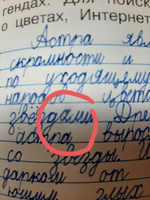 гендах. Для поиск
о цветах, Интернет
Астра явл
скромности и
по уходящему
народов цвета
звёздами Дре
астра выпос
со звезды И
далёкой от
злых